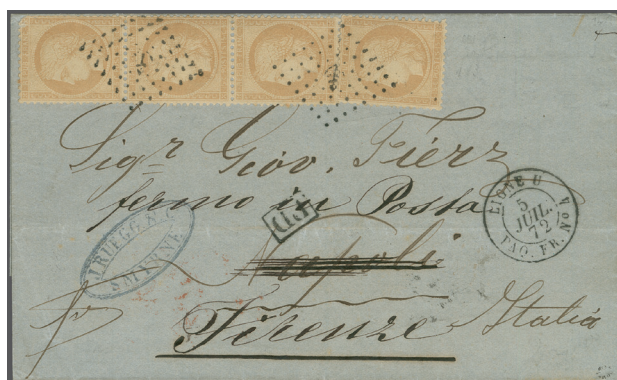 Sig.r Giov. Fierz
fermo in Posta
Napoli
Firenze Italia
P.D.
LIGNE U
5
JUIL.
72
PAQ. FR. No 4
J. RUEGG
SMYRNE